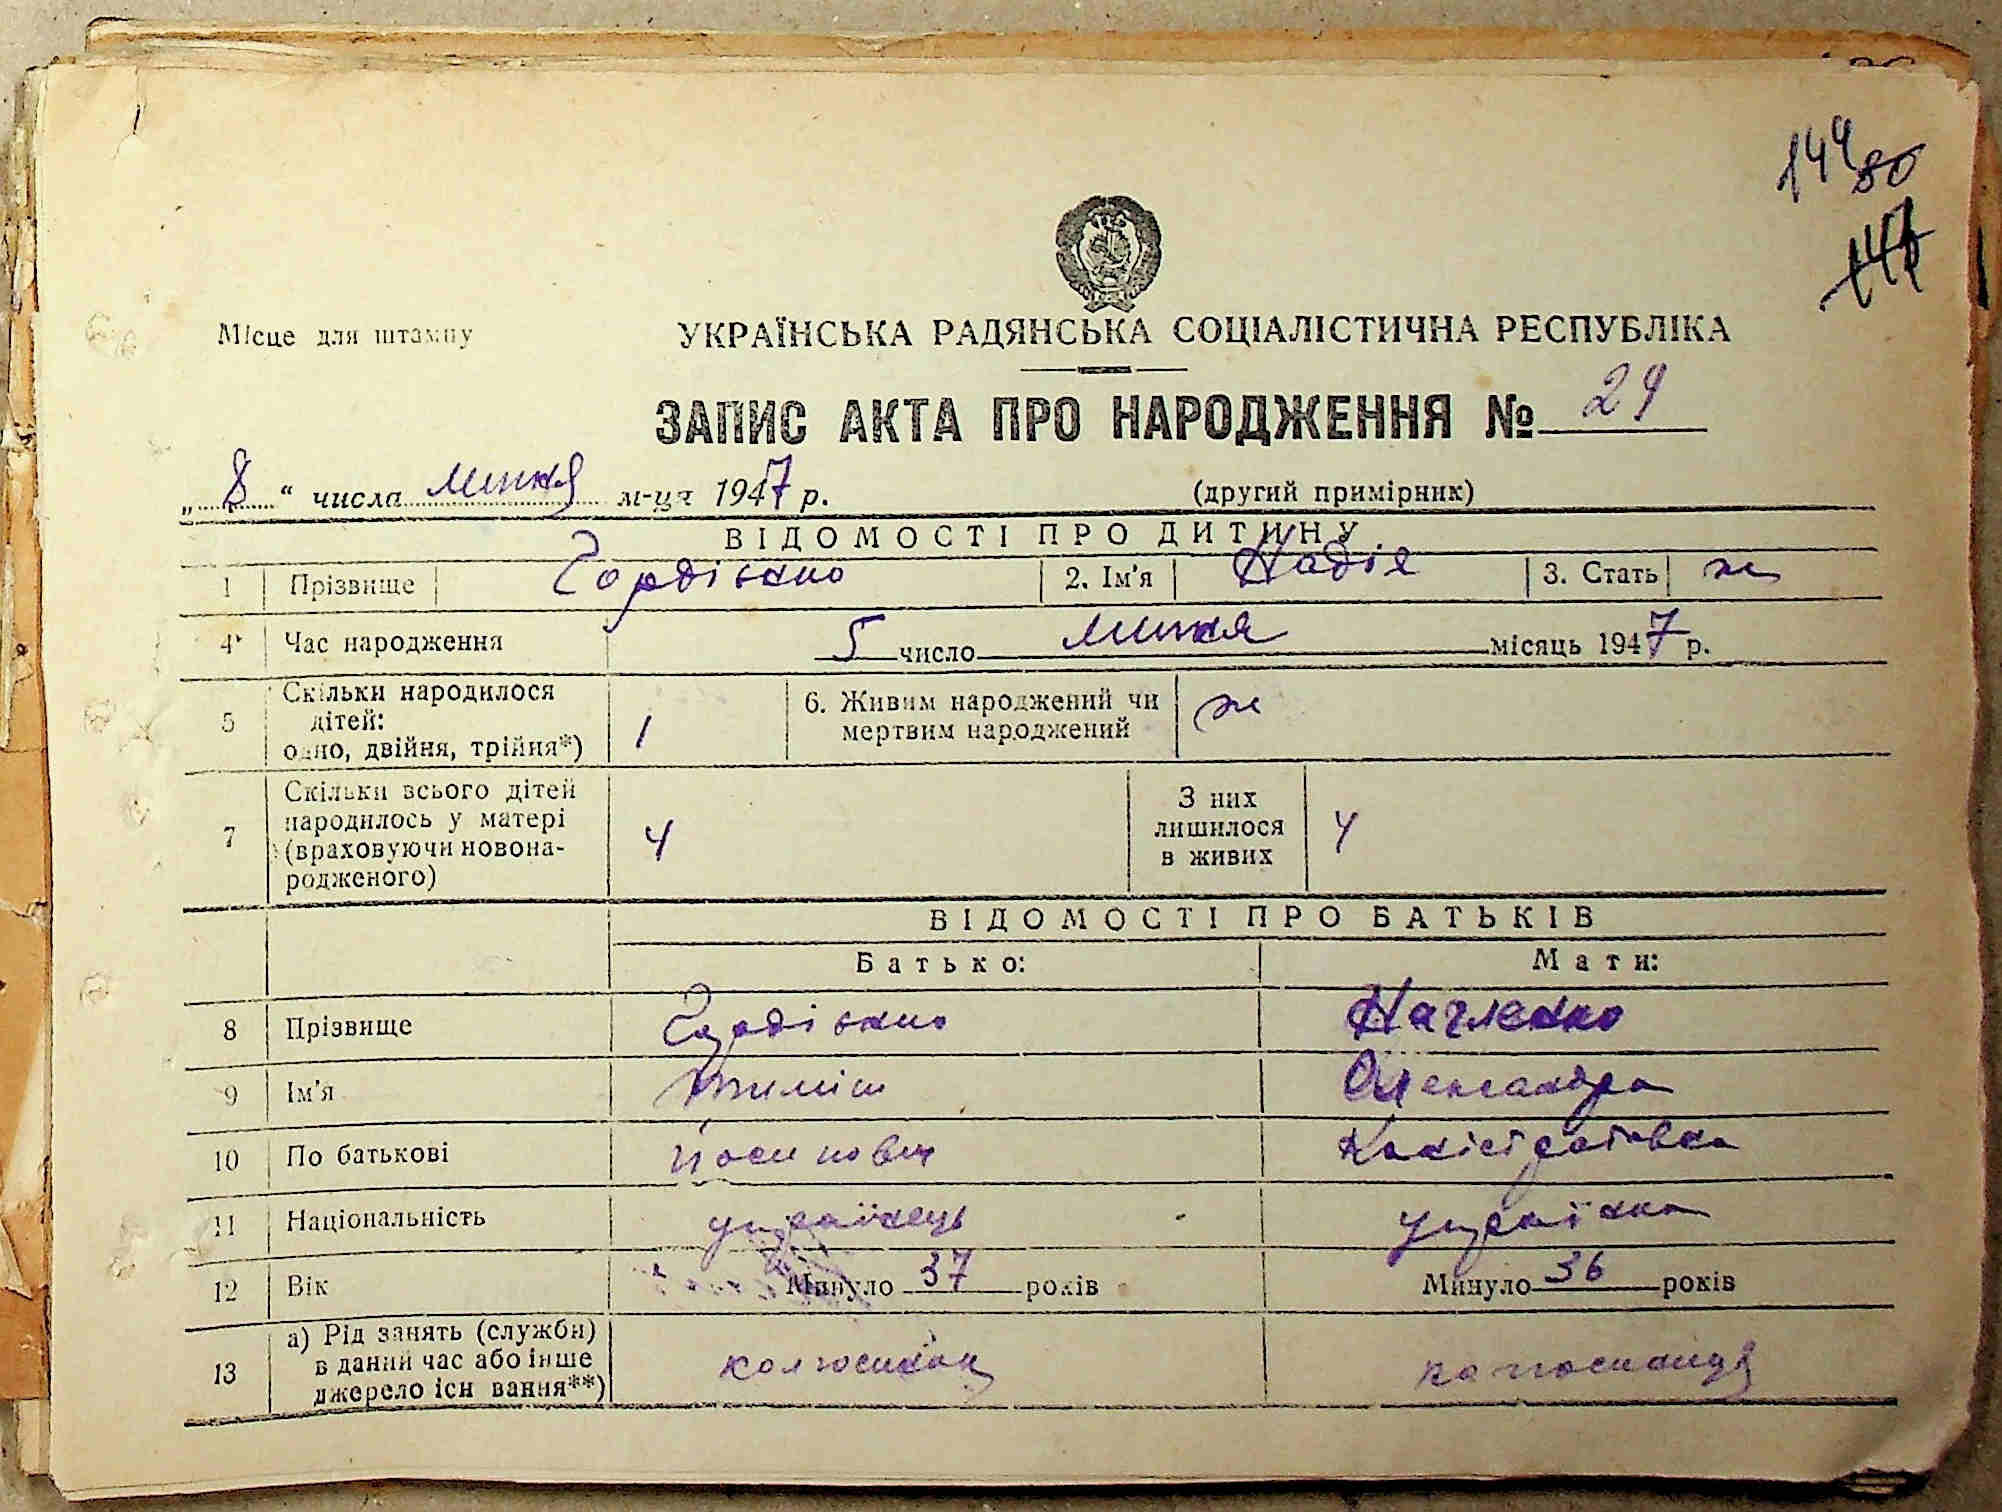 144 80
Місце для штампу
УКРАЇНСЬКА РАДЯНСЬКА СОЦІАЛІСТИЧНА РЕСПУБЛІКА
ЗАПИС АКТА ПРО НАРОДЖЕННЯ № 29
„ 8 “ числа липня м-ця 1947 р. (другий примірник)
ВІДОМОСТІ ПРО ДИТИНУ
1 Прізвище Гордієнко 2. Ім'я Надія 3. Стать ж
4 Час народження 5 число липня місяць 1947 р.
5 Скільки народилося дітей: одно, двійня, трійня*) 1 6. Живим народжений чи мертвим народжений ж
7 Скільки всього дітей народилось у матері (враховуючи новонародженого) 4 З них лишилося в живих 4
ВІДОМОСТІ ПРО БАТЬКІВ
Батько: Мати:
8 Прізвище Гордієнко
9 Ім'я Тиміш Олександра
10 По батькові Йосипович Калістратівна
11 Національність українець українка
12 Вік Минуло 37 років Минуло 36 років
13 а) Рід занять (служби) в даний час або інше джерело існ вання**) колгоспник колгоспниця